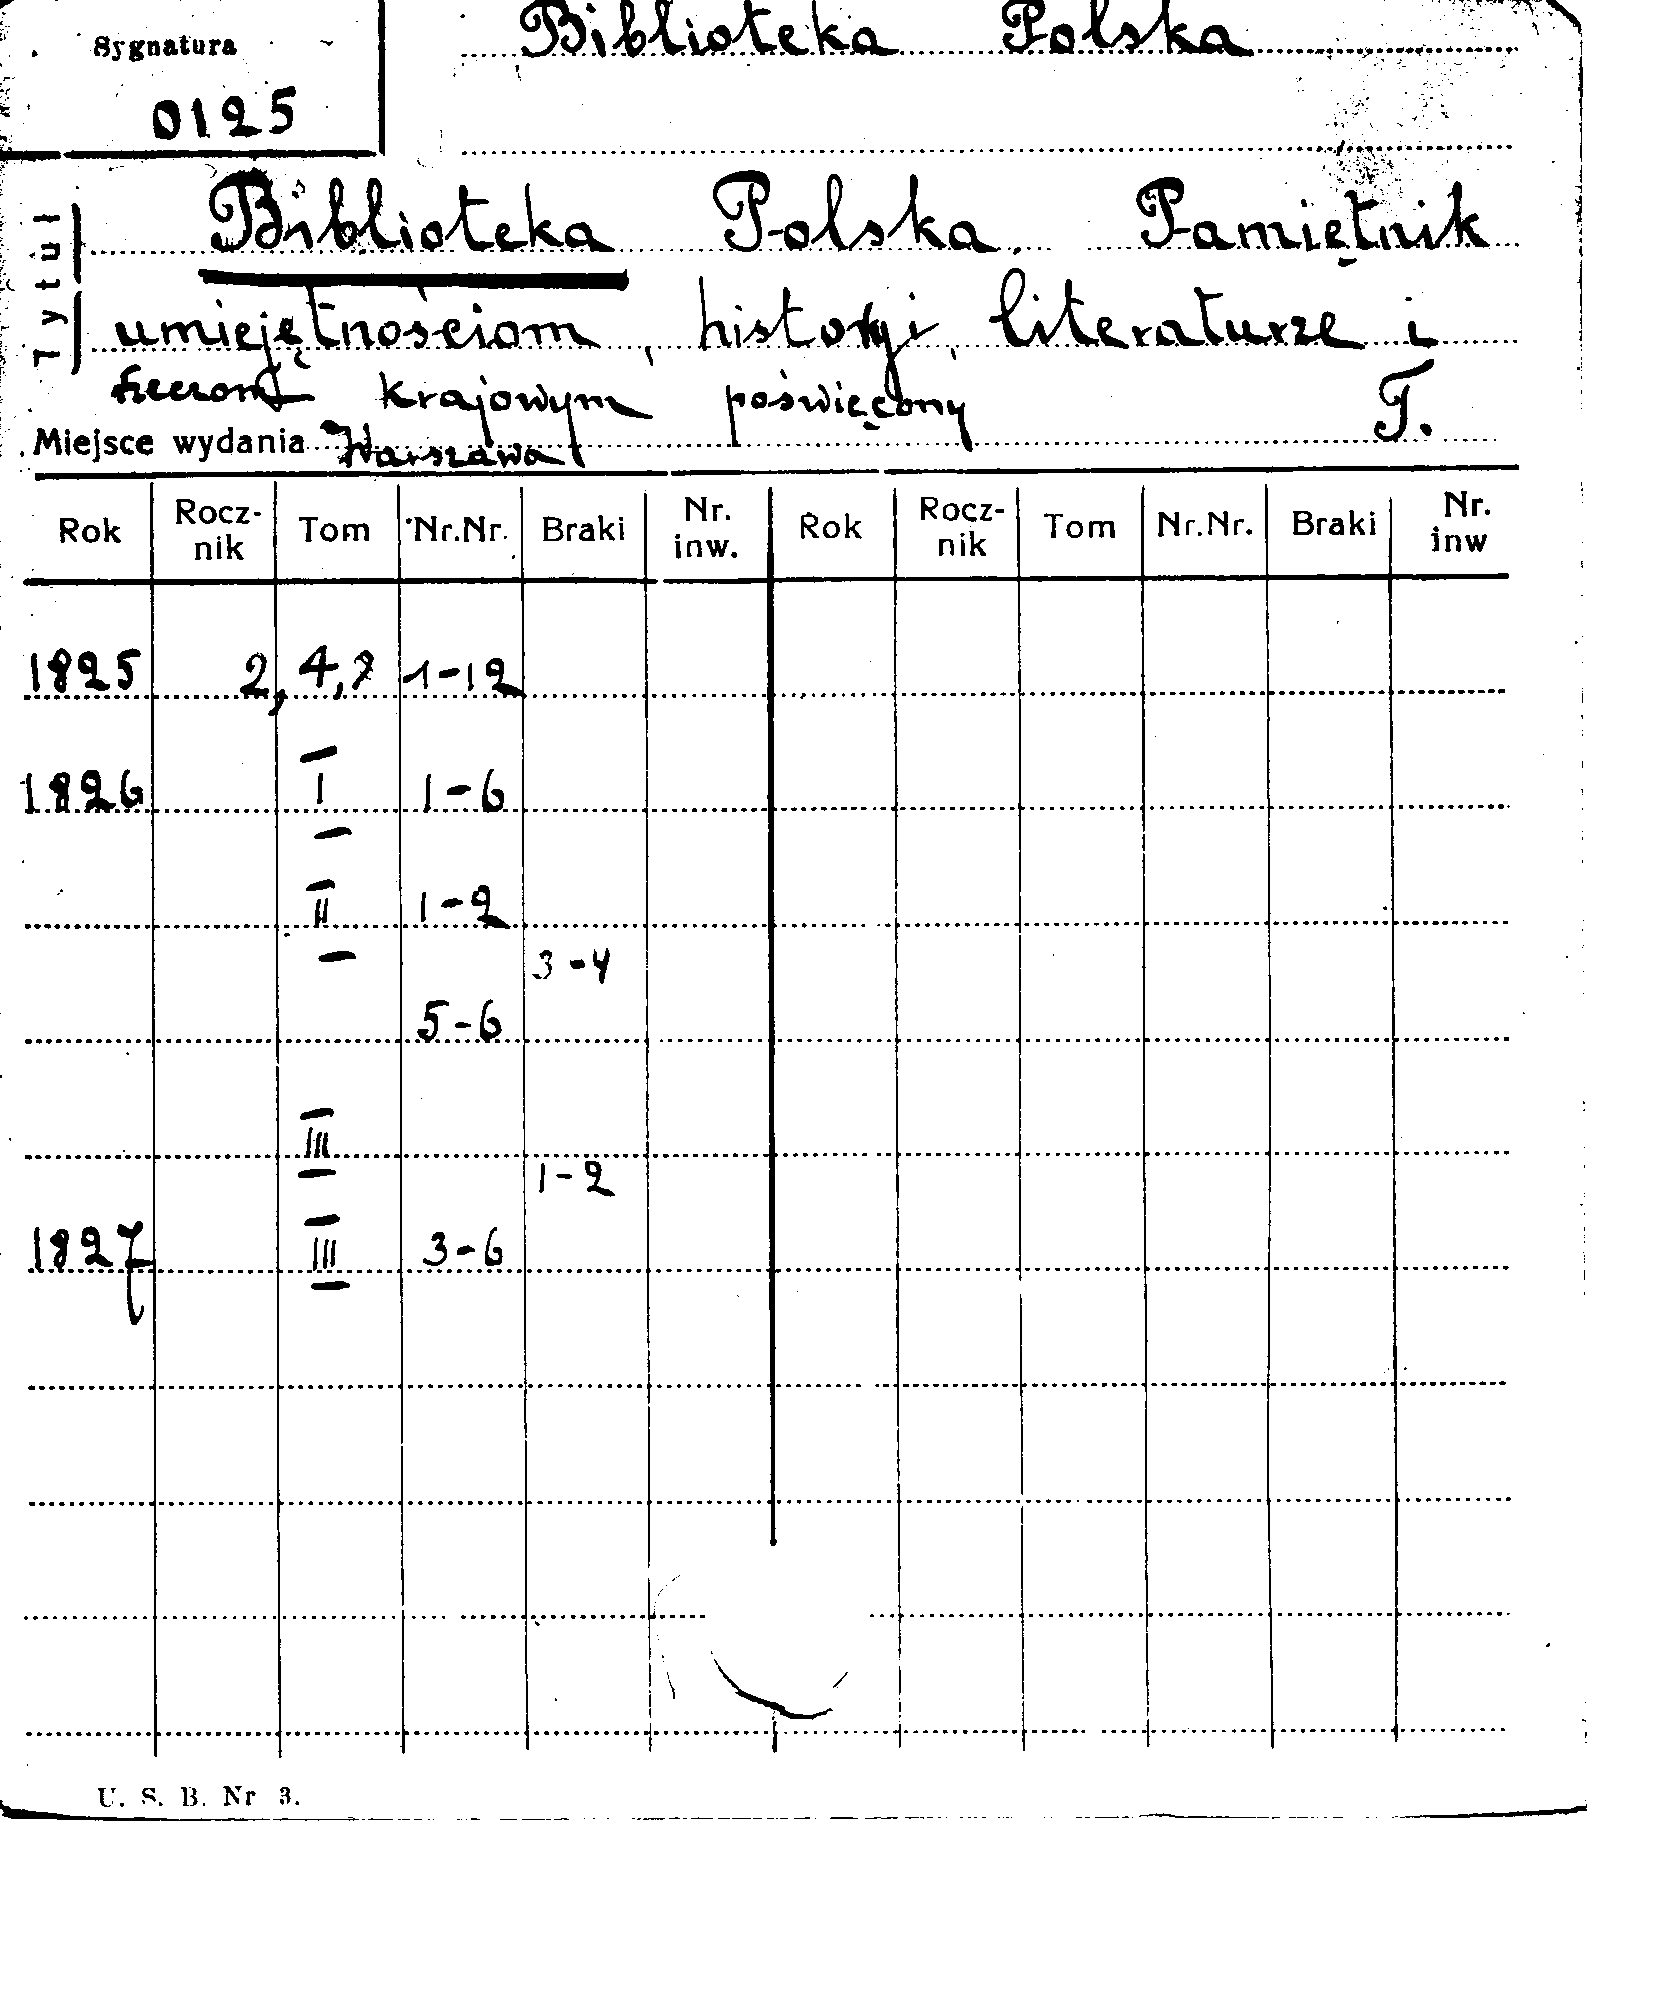 Sygnatura
0125
Biblioteka Polska
Tytuł
Biblioteka Polska. Pamiętnik
umiejętnościom, historyi, literaturze i
rzeczom krajowym poświęcony
T.
Miejsce wydania Warszawa
Rok Rocz-nik Tom Nr.Nr. Braki Nr. inw. Rok Rocz-nik Tom Nr.Nr. Braki Nr. inw
1825 2, 4, 1-12
1826 I 1-6
II 1-2
3-4
5-6
III
1-2
1827 III 3-6
U. S. B. Nr 3.